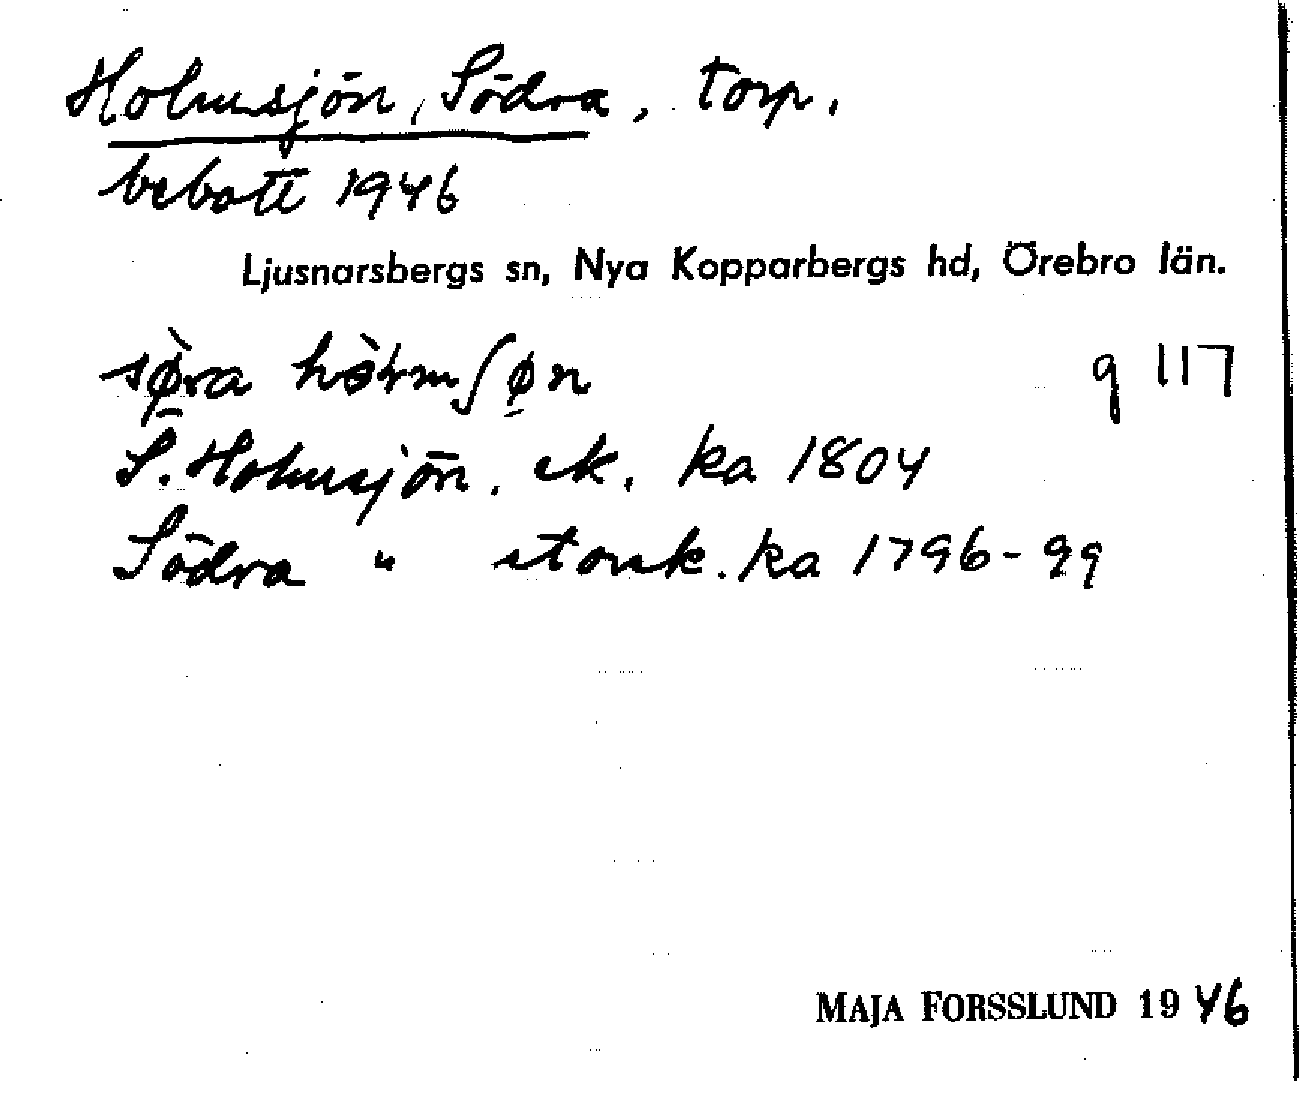 Holmsjön, Södra, torp.
bebott 1946
Ljusnarsbergs sn, Nya Kopparbergs hd, Örebro län.
sø̀ra hòłmʃøn g 117
S. Holmsjön. ek. ka 1804
Södra " storsk. ka 1796-99
MAJA FORSSLUND 1946